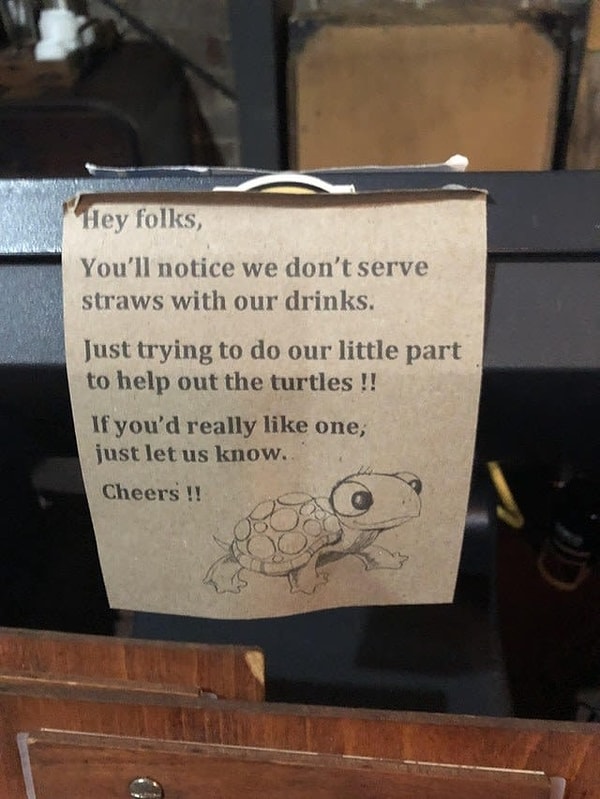 Hey folks,
You'll notice we don't serve
straws with our drinks.
Just trying to do our little part
to help out the turtles !!
If you'd really like one,
just let us know.
Cheers !!